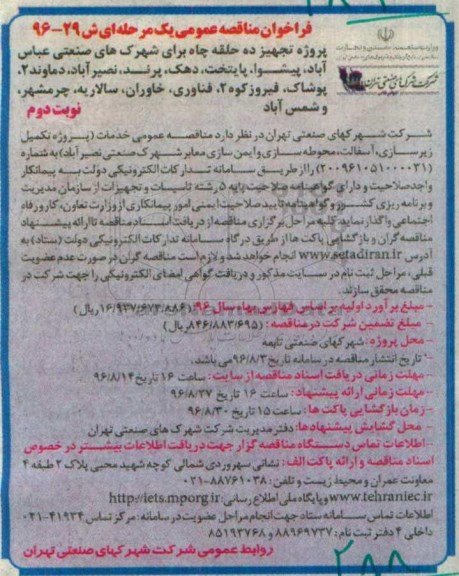 فراخوان مناقصه عمومی یک مرحله‌ای ش ۲۹-۹۶
پروژه تجهیز ده حلقه چاه برای شهرک های صنعتی عباس
آباد، پیشوا، پایتخت، دهک، پرند، نصیرآباد، دماوند۲،
پوشاک، فیروزکوه۲، فناوری، خاوران، سالاریه، چرمشهر،
و شمس آباد
نوبت دوم
وزارت صنعت، معدن و تجارت
شرکت شهرکهای صنعتی تهران
شرکت شهرکهای صنعتی تهران در نظر دارد مناقصه عمومی خدمات (پروژه تکمیل
زیرسازی، آسفالت، محوطه سازی و ایمن سازی معابر شهرک صنعتی نصیرآباد) به شماره
(۲۰۰۹۶۱۰۵۱۰۰۰۰۳۱) را از طریق سامانه تدارکات الکترونیکی دولت به پیمانکار
واجد صلاحیت و دارای گواهینامه صلاحیت پایه ۵ رشته تاسیسات و تجهیزات از سازمان مدیریت
و برنامه ریزی کشور و گواهینامه تایید صلاحیت ایمنی امور پیمانکاری از وزارت تعاون، کار و رفاه
اجتماعی واگذار نماید. کلیه مراحل برگزاری مناقصه از دریافت اسناد مناقصه تا ارائه پیشنهاد
مناقصه گران و بازگشایی پاکت ها از طریق درگاه سامانه تدارکات الکترونیکی دولت (ستاد) به
آدرس www.setadiran.ir انجام خواهد شد و لازم است مناقصه گران در صورت عدم عضویت
قبلی، مراحل ثبت نام در سایت مذکور و دریافت گواهی امضای الکترونیکی را جهت شرکت در
مناقصه محقق سازند.
- مبلغ برآورد اولیه بر اساس فهارس بهاء سال ۹۶: (۱۶/۹۳۷/۶۷۳/۸۸۶ ریال)
- مبلغ تضمین شرکت در مناقصه: (۸۴۶/۸۸۳/۶۹۵ ریال)
- محل پروژه: شهرکهای صنعتی تابعه
- تاریخ انتشار مناقصه در سامانه تاریخ ۹۶/۸/۳ می باشد.
- مهلت زمانی دریافت اسناد مناقصه از سایت: ساعت ۱۶ تاریخ ۹۶/۸/۱۴
- مهلت زمانی ارائه پیشنهاد: ساعت ۱۶ تاریخ ۹۶/۸/۲۷
- زمان بازگشایی پاکت ها: ساعت ۱۵ تاریخ ۹۶/۸/۳۰
- محل گشایش پیشنهادها: دفتر مدیریت شرکت شهرک های صنعتی تهران
- اطلاعات تماس دستگاه مناقصه گزار جهت دریافت اطلاعات بیشتر در خصوص
اسناد مناقصه و ارائه پاکت الف: نشانی سهروردی شمالی کوچه شهید محبی پلاک ۲ طبقه ۴
معاونت عمران و محیط زیست و تلفن: ۸۸۷۶۱۰۳۸-۰۲۱
www.tehraniec.ir و پایگاه ملی اطلاع رسانی: http://iets.mporg.ir
اطلاعات تماس سامانه ستاد جهت انجام مراحل عضویت در سامانه: مرکز تماس ۴۱۹۳۴-۰۲۱
داخلی ۴ دفتر ثبت نام: ۸۸۹۶۹۷۳۷ و ۸۵۱۹۳۷۶۸
روابط عمومی شرکت شهرکهای صنعتی تهران
۲۸۸